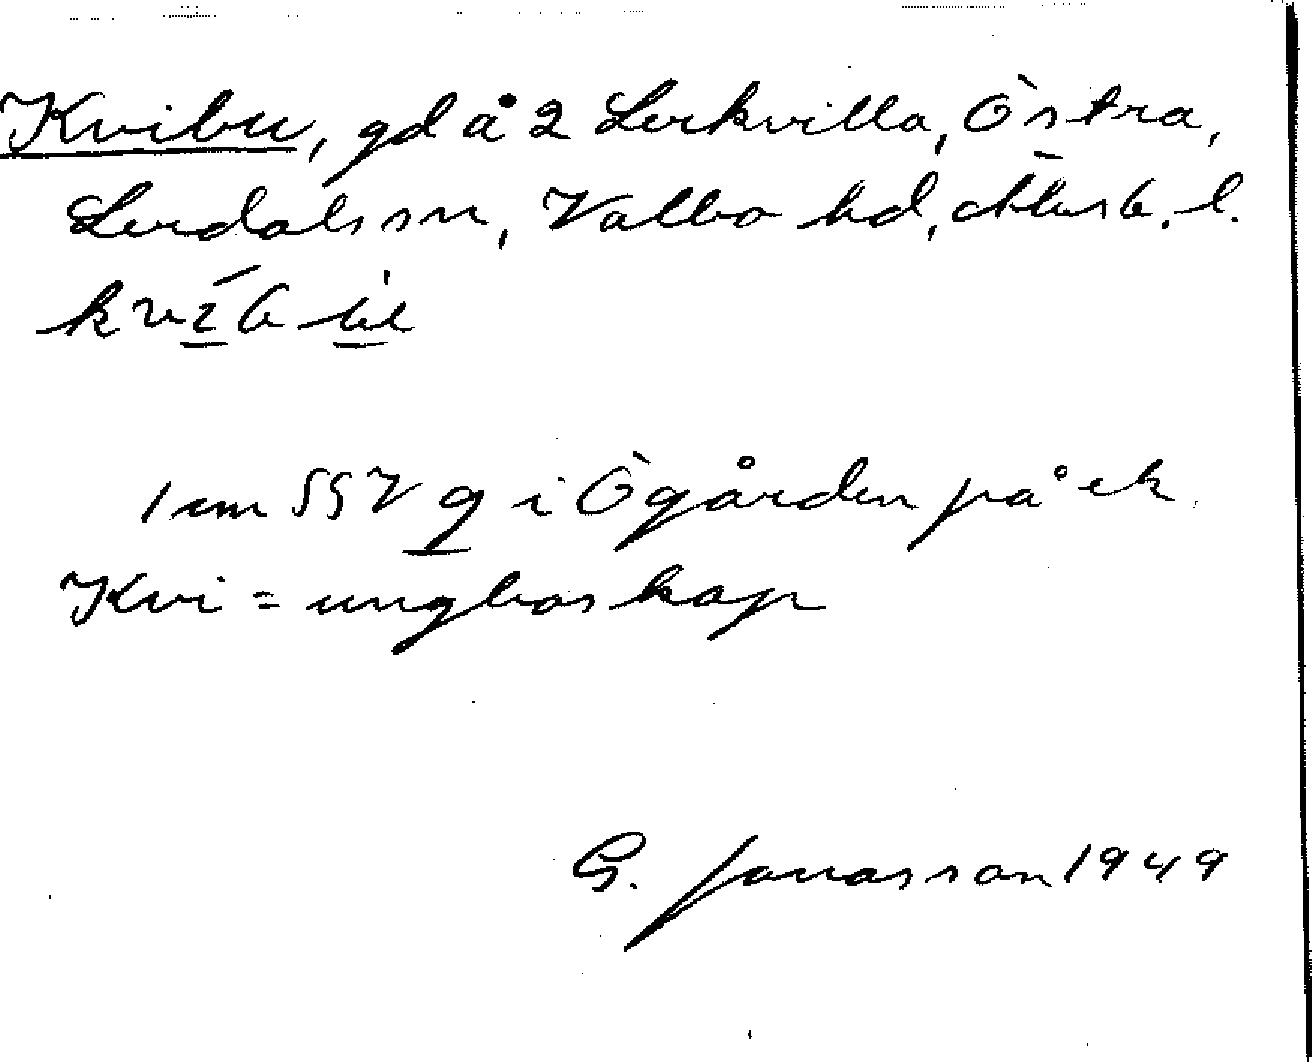 Kvibu, gd å 2 Lerkvilla, Östra,
Lerdals sn, Valbo hd, Älvsb. l.
1 cm SSV g i Ögården på ek.
Kvi = ungboskap
G. Jonasson 1949